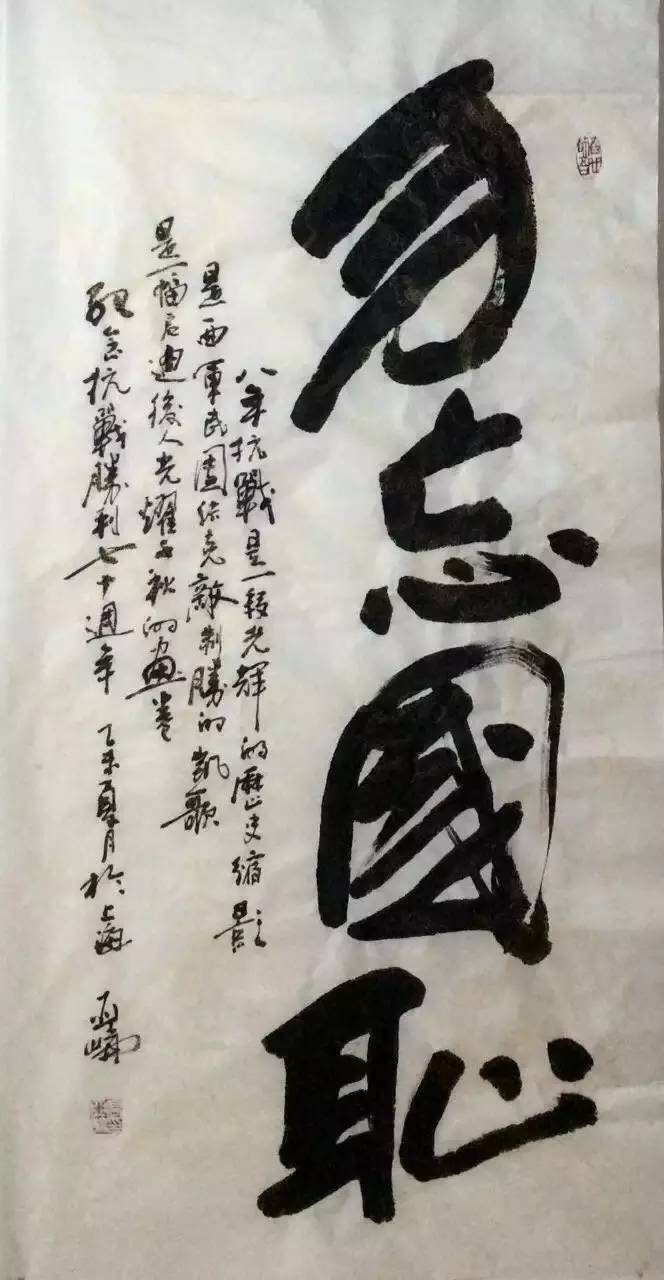 勿忘國恥
八年抗戰是一段光輝的歷史縮影
是兩軍民團結克敵制勝的凱歌
是一幅启迪後人光耀千秋的畫卷
纪念抗戰勝利七十週年 乙未夏月於上海